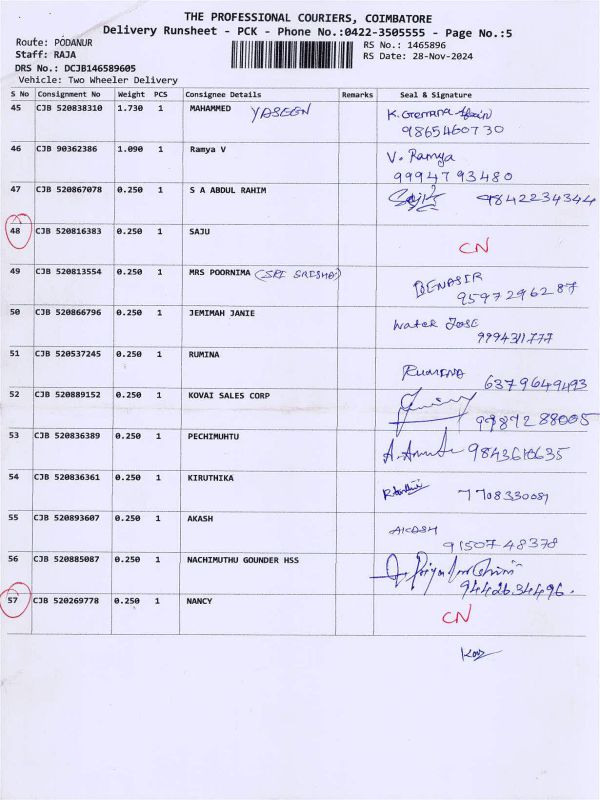 THE PROFESSIONAL COURIERS, COIMBATORE
Delivery Runsheet - PCK - Phone No.:0422-3505555 - Page No.:5
Route: PODANUR RS No.: 1465896
Staff: RAJA RS Date: 28-Nov-2024
DRS No.: DCJB146589605
Vehicle: Two Wheeler Delivery
S No Consignment No Weight PCS Consignee Details Remarks Seal & Signature
45 CJB 520838310 1.730 1 MAHAMMED YASEEN
9865460730
46 CJB 90362386 1.090 1 Ramya V V. Ramya
9994793480
47 CJB 520867078 0.250 1 S A ABDUL RAHIM 9842234344
48 CJB 520816383 0.250 1 SAJU
CN
49 CJB 520813554 0.250 1 MRS POORNIMA BENASIR
9597296287
50 CJB 520866796 0.250 1 JEMIMAH JANIE
JOSE
51 CJB 520537245 0.250 1 RUMINA
RUMINA 6379649493
52 CJB 520889152 0.250 1 KOVAI SALES CORP
53 CJB 520836389 0.250 1 PECHIMUHTU
9843610635
54 CJB 520836361 0.250 1 KIRUTHIKA
55 CJB 520893607 0.250 1 AKASH
AKASH
9150748378
56 CJB 520885087 0.250 1 NACHIMUTHU GOUNDER HSS
9442634496.
57 CJB 520269778 0.250 1 NANCY
CN